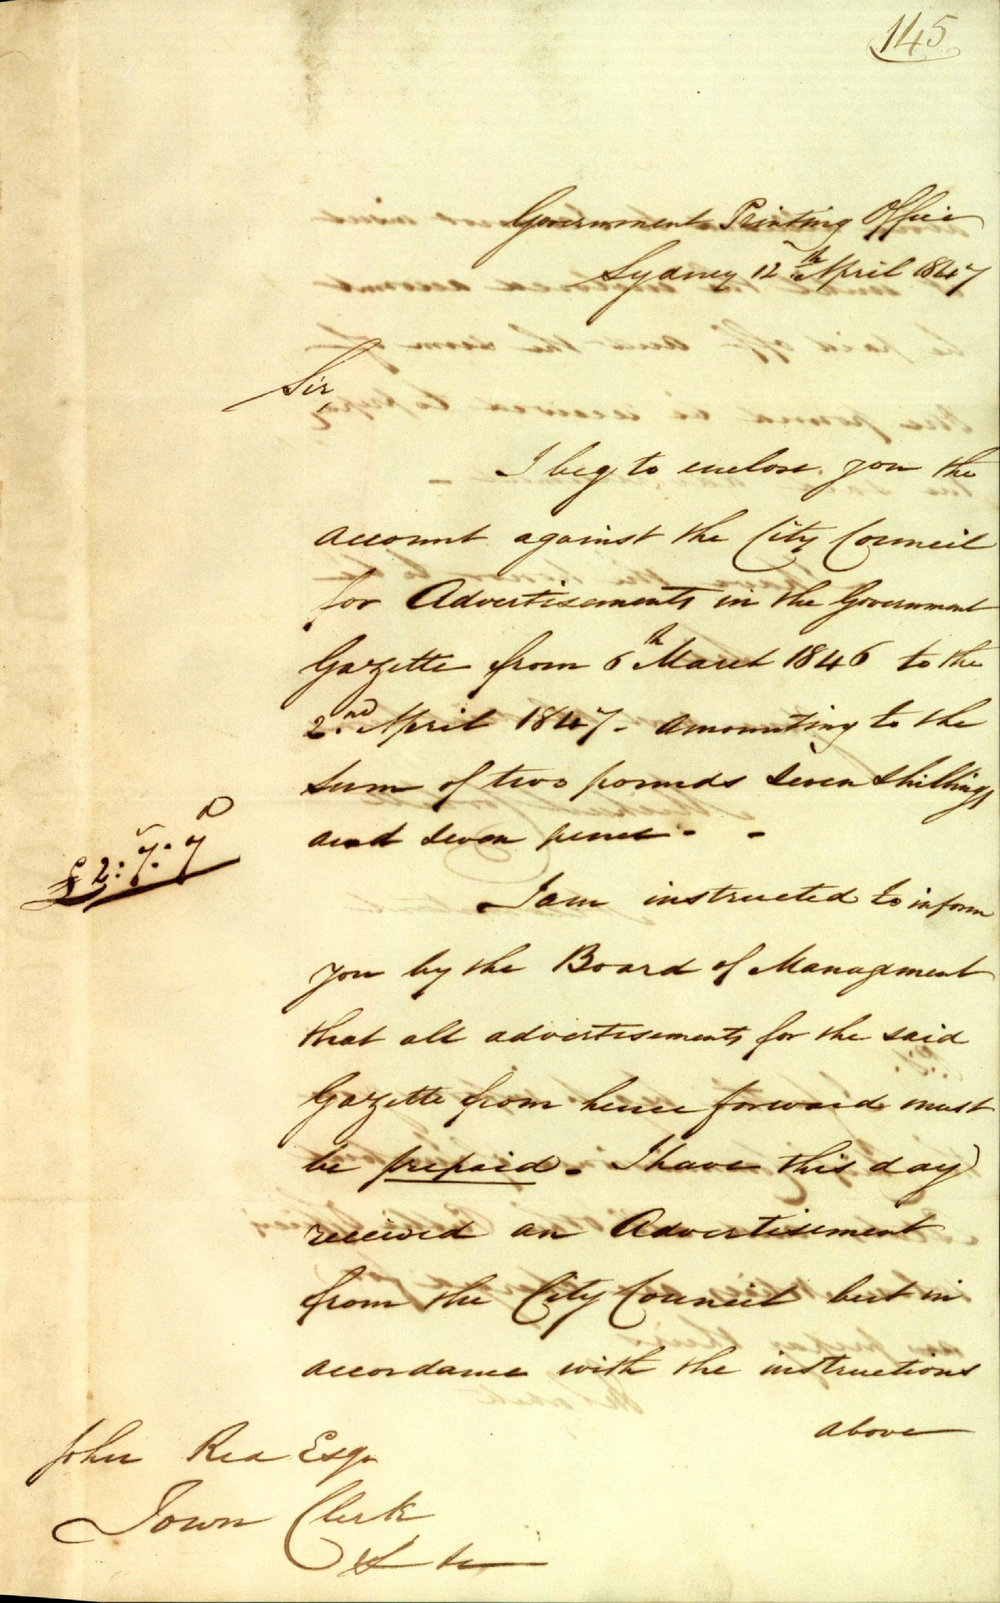 145
Government Printing Office
Sydney 12th April 1847
Sir,
I beg to enclose you the
account against the City Council
for Advertisements in the Government
Gazette from 6th March 1846 to the
2nd April 1847 - amounting to the
sum of two pounds seven shillings
and seven pence - -
£2:7:7 D
I am instructed to inform
you by the Board of Managment
that all advertisements for the said
Gazette from hence forward must
be prepaid. I have this day
received an Advertisement
from the City Council but in
accordance with the instructions
above
John Rea Esqr
Town Clerk